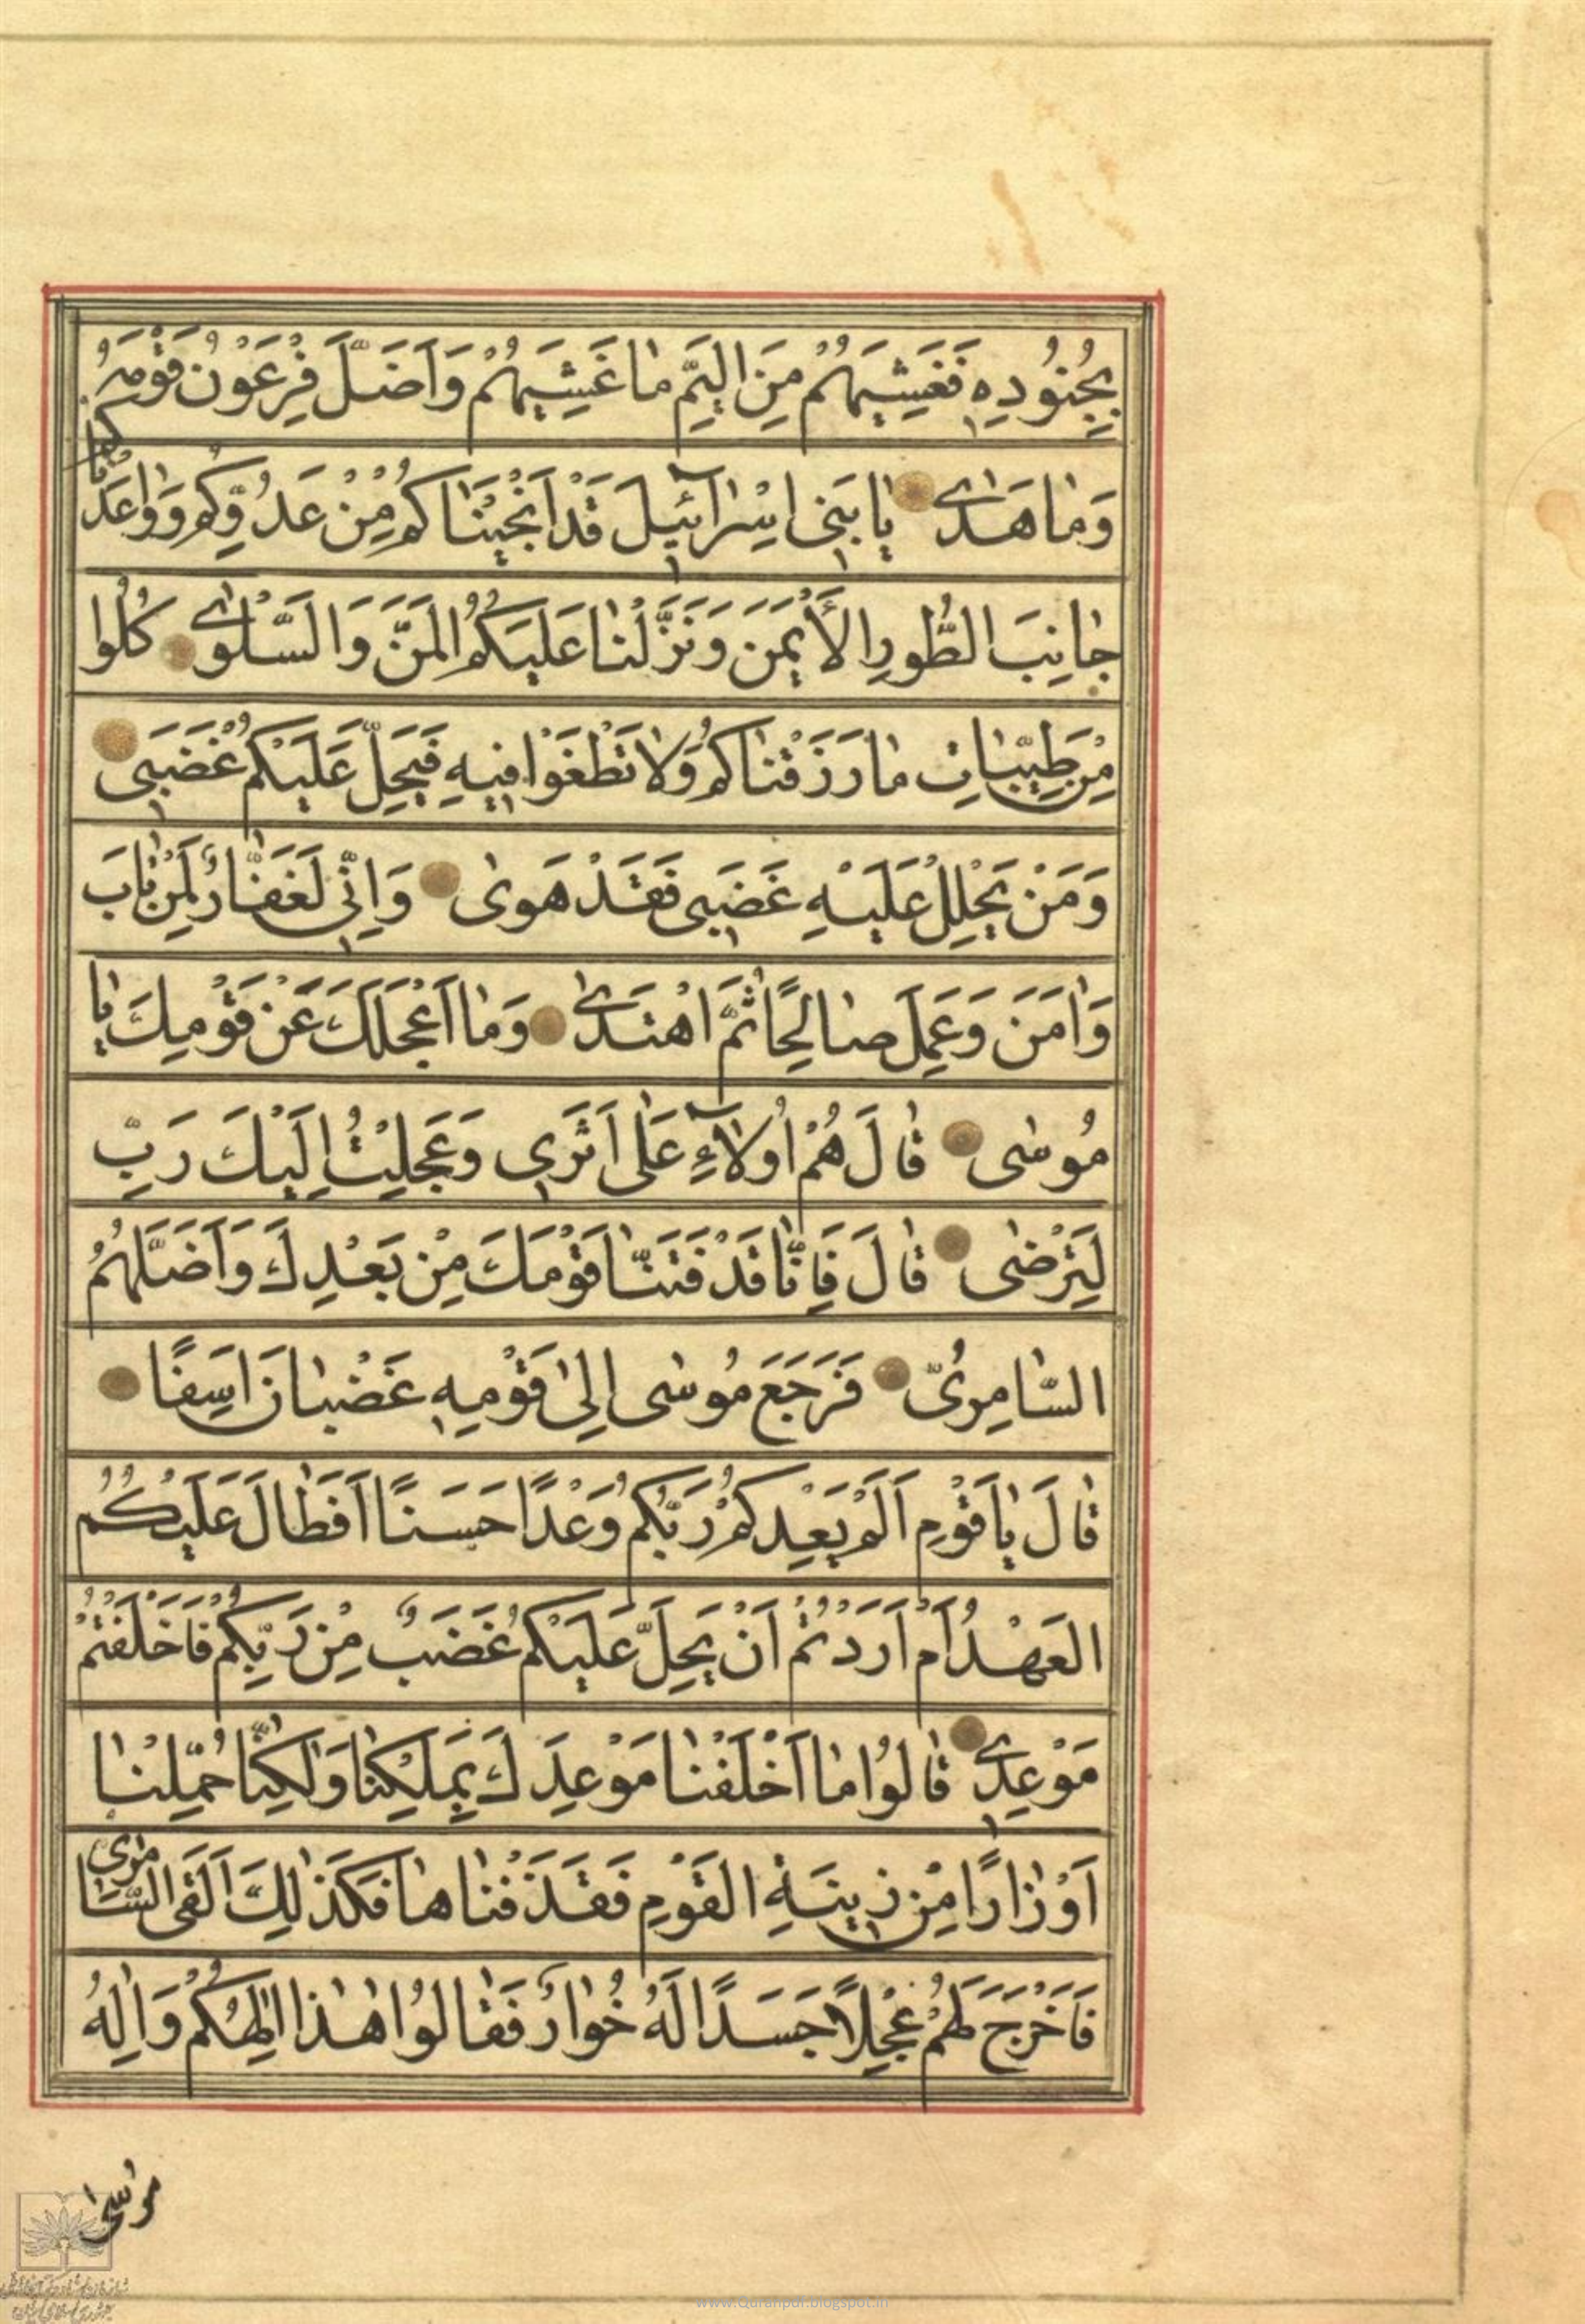 بِجُنُودِهِ فَغَشِيَهُمْ مِنَ الْيَمِّ مٰا غَشِيَهُمْ وَاَضَلَّ فِرْعَوْنُ قَوْمَهُ
وَمٰا هَدٰى يٰا بَنِى اِسْرٰآئِيلَ قَدْ اَنْجَيْنٰاكُمْ مِنْ عَدُوِّكُمْ وَوٰاعَدْنٰاكُمْ
جٰانِبَ الطُّورِ الْأَيْمَنَ وَنَزَّلْنٰا عَلَيْكُمُ الْمَنَّ وَالسَّلْوٰى كُلُوا
مِنْ طَيِّبٰاتِ مٰا رَزَقْنٰاكُمْ وَلٰا تَطْغَوْا فِيهِ فَيَحِلَّ عَلَيْكُمْ غَضَبِى
وَمَنْ يَحْلِلْ عَلَيْهِ غَضَبِى فَقَدْ هَوىٰ وَاِنِّى لَغَفّٰارٌ لِمَنْ تٰابَ
وَاٰمَنَ وَعَمِلَ صٰالِحًا ثُمَّ اهْتَدٰى وَمٰا اَعْجَلَكَ عَنْ قَوْمِكَ يٰا
مُوسٰى قٰالَ هُمْ اُولٰآءِ عَلٰى اَثَرِى وَعَجِلْتُ اِلَيْكَ رَبِّ
لِتَرْضٰى قٰالَ فَاِنّٰا قَدْ فَتَنّٰا قَوْمَكَ مِنْ بَعْدِكَ وَاَضَلَّهُمُ
السّٰامِرِىُّ فَرَجَعَ مُوسٰى اِلىٰ قَوْمِهِ غَضْبٰانَ اَسِفًا
قٰالَ يٰا قَوْمِ اَلَمْ يَعِدْكُمْ رَبُّكُمْ وَعْدًا حَسَنًا اَفَطٰالَ عَلَيْكُمُ
الْعَهْدُ اَمْ اَرَدْتُمْ اَنْ يَحِلَّ عَلَيْكُمْ غَضَبٌ مِنْ رَبِّكُمْ فَاَخْلَفْتُمْ
مَوْعِدِى قٰالُوا مٰا اَخْلَفْنٰا مَوْعِدَكَ بِمَلْكِنٰا وَلٰكِنّٰا حُمِّلْنٰا
اَوْزٰارًا مِنْ زِينَةِ الْقَوْمِ فَقَذَفْنٰاهٰا فَكَذٰلِكَ اَلْقَى السّٰامِرِىُّ
فَاَخْرَجَ لَهُمْ عِجْلًا جَسَدًا لَهُ خُوٰارٌ فَقٰالُوا هٰذٰا اِلٰهُكُمْ وَاِلٰهُ
مُوسٰى
www.Quranpdf.blogspot.in